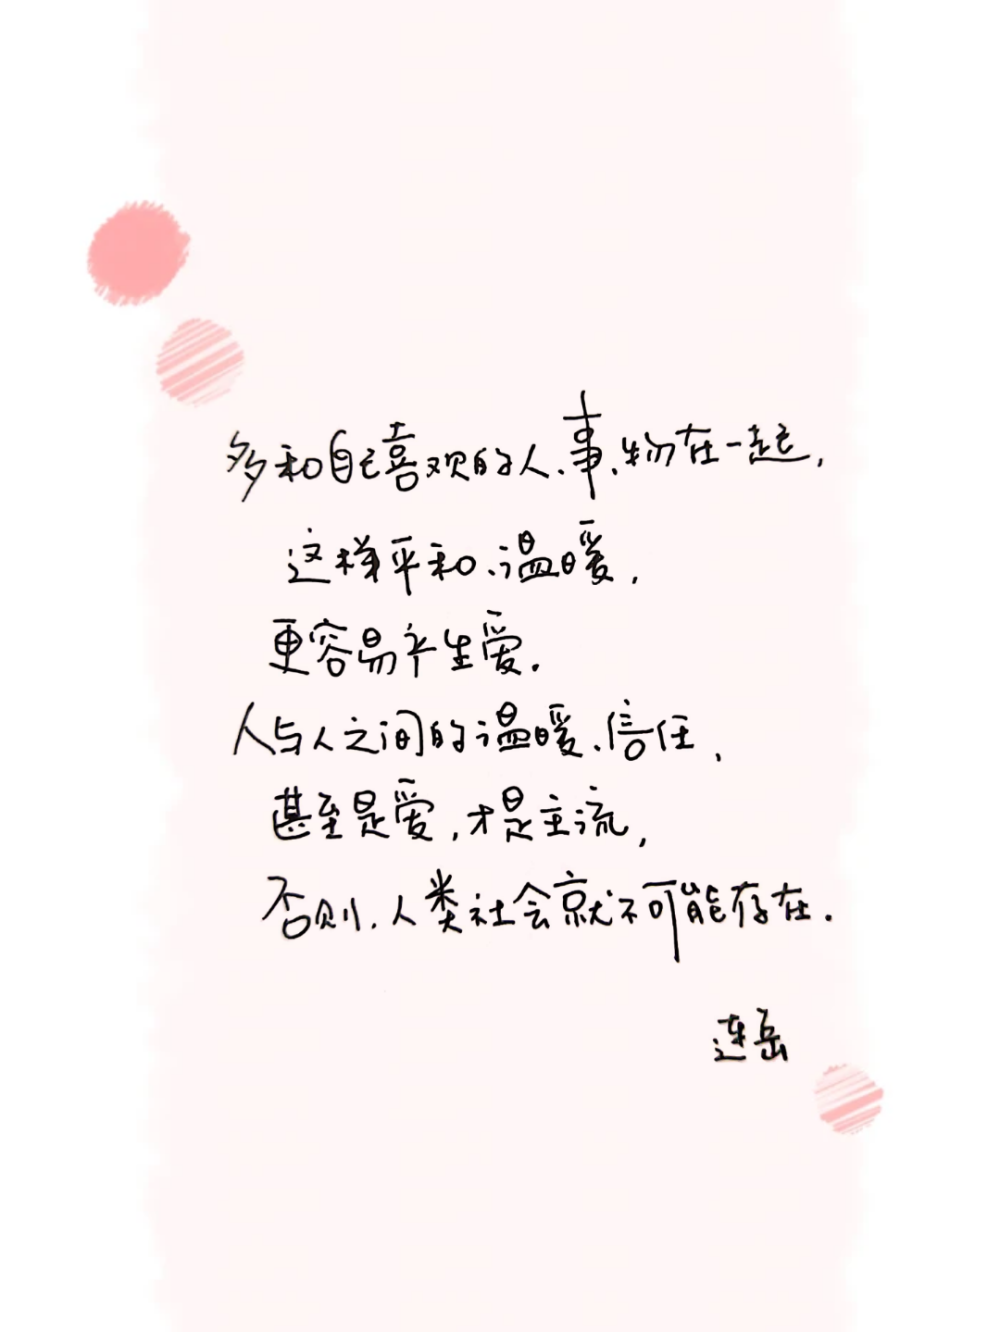 多和自己喜欢的人、事、物在一起,
这样平和、温暖,
更容易产生爱.
人与人之间的温暖、信任,
甚至是爱,才是主流,
否则,人类社会就不可能存在.
连岳